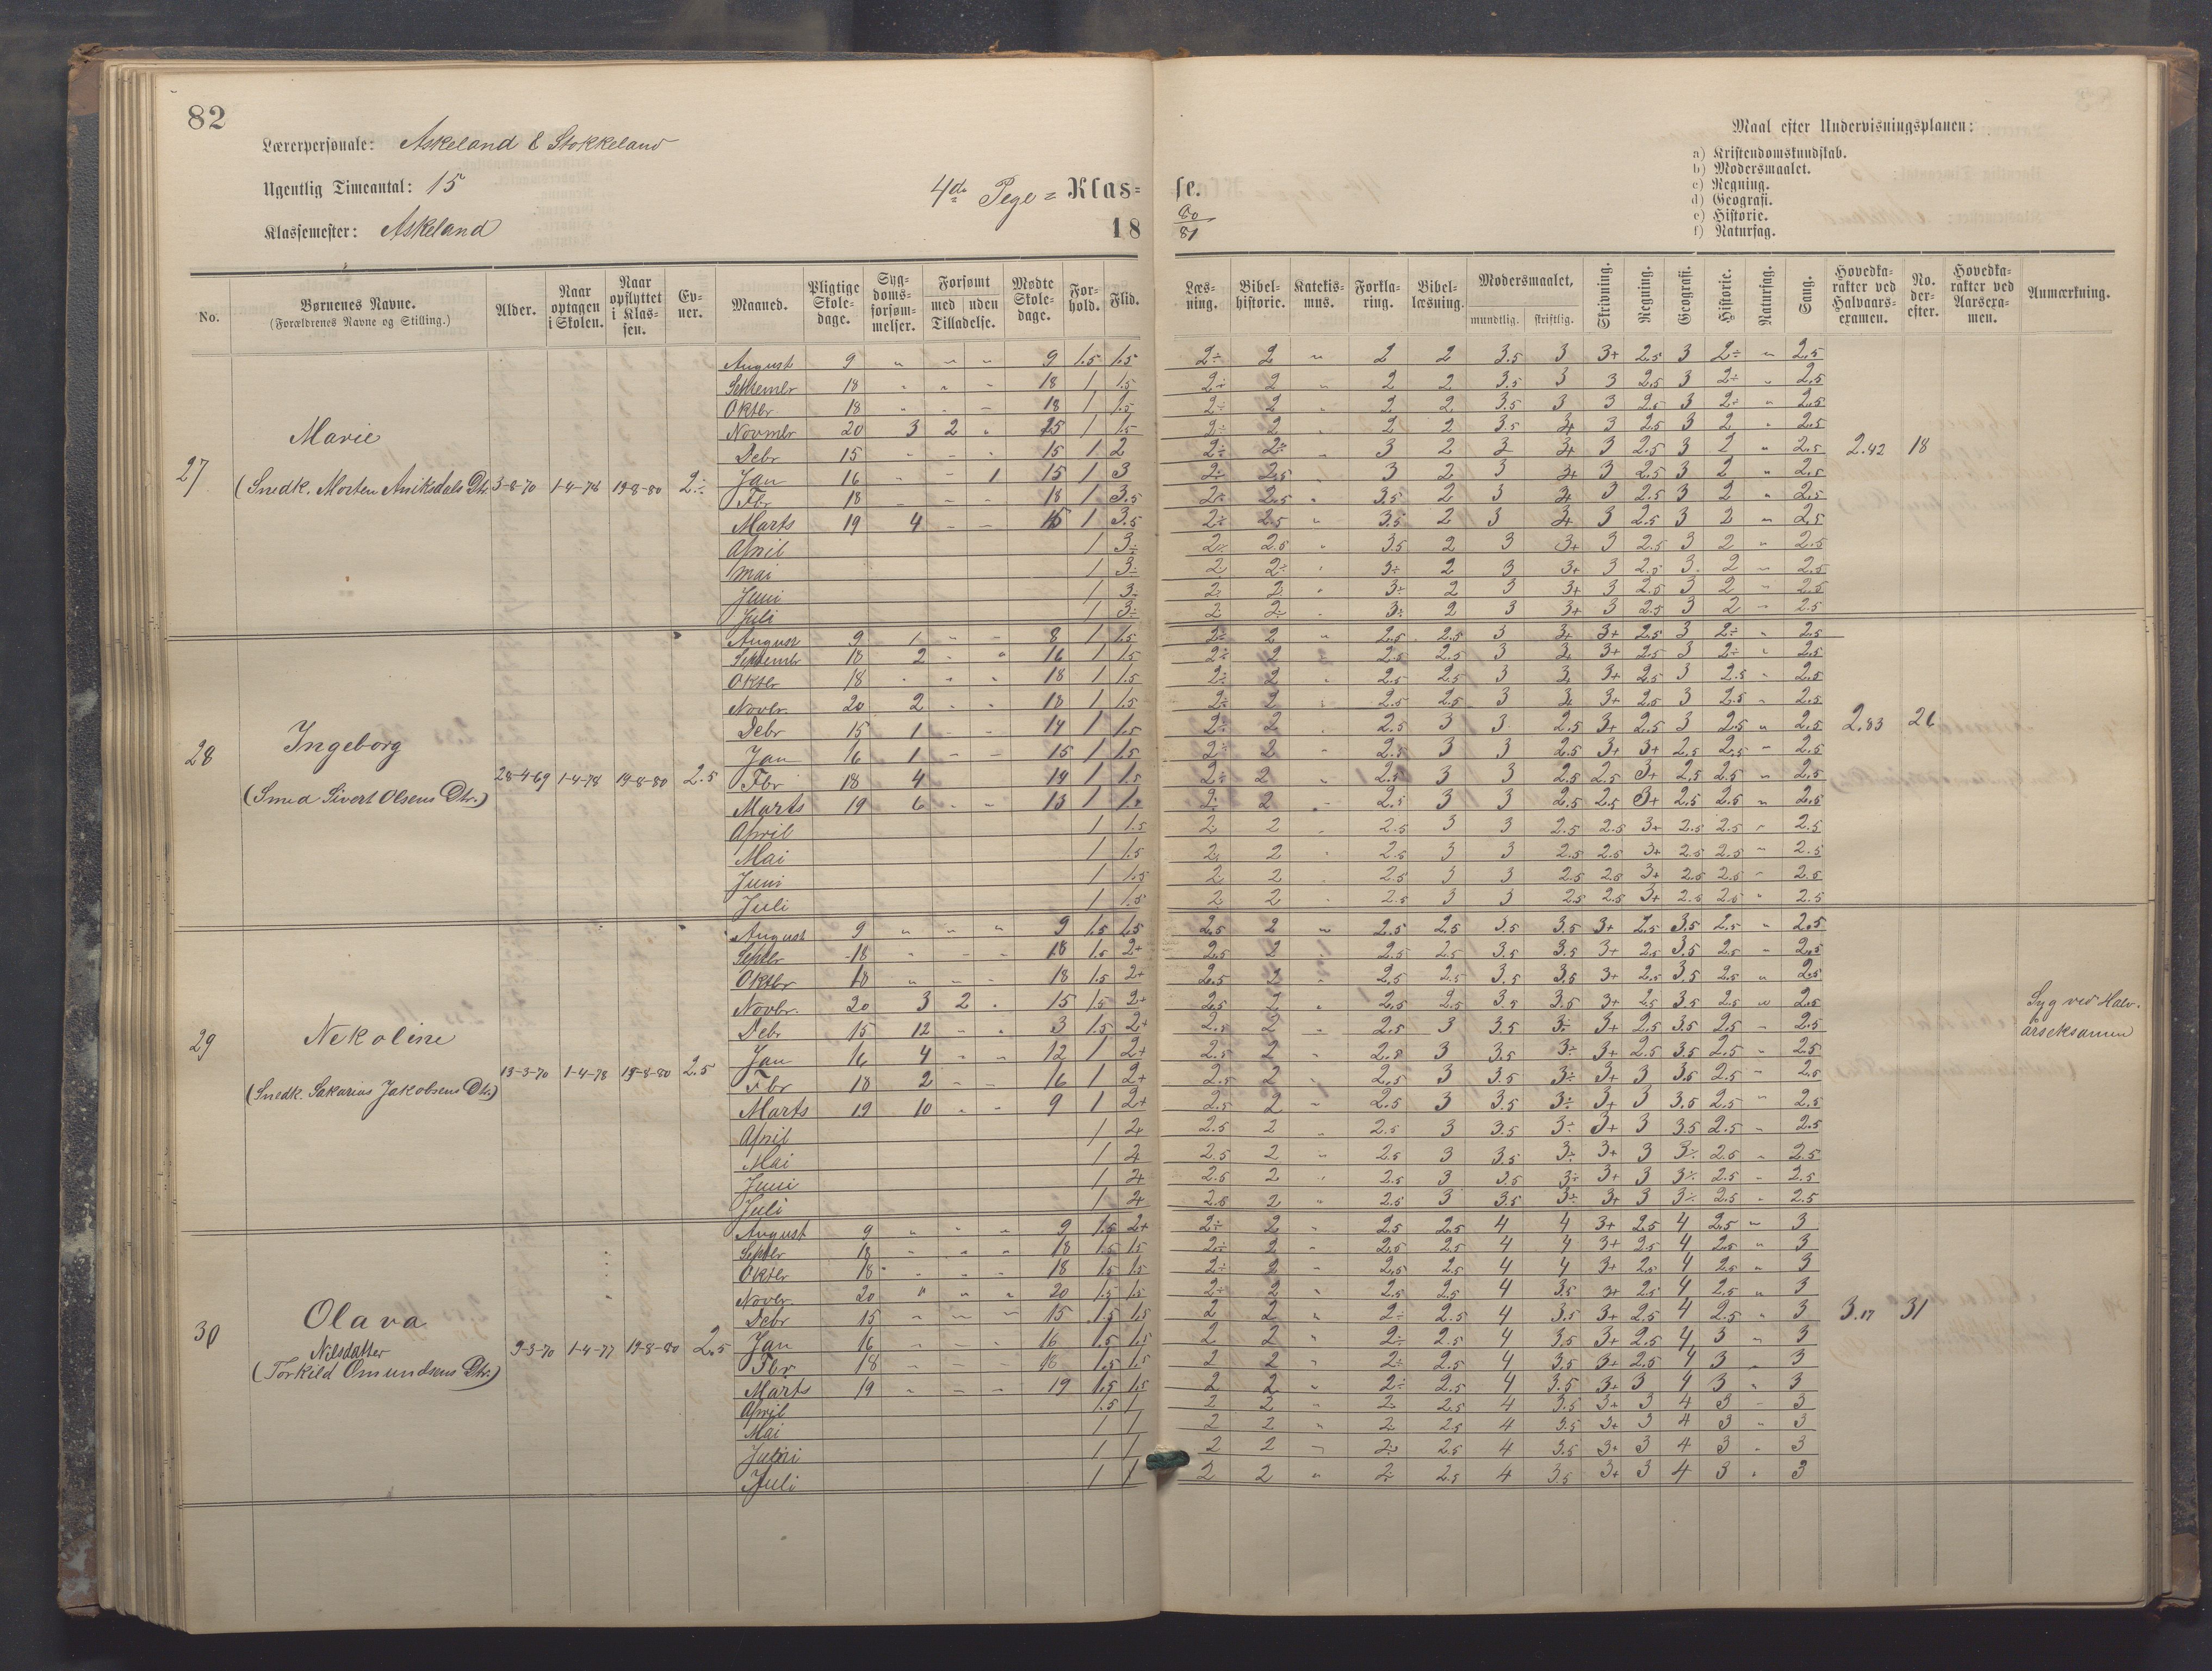 82
Lærerpersonale: Askeland & Stokkeland
Ugentlig Timeantal: 15
Klassemester: Askeland
4de Pige = Klas=
18
se.
80
81
Maal efter Undervisningsplanen:
a) Kristendomskundskab.
b) Modersmaalet.
c) Regning.
d) Geografi.
e) Historie.
f) Naturfag.
No. | Børnenes Navne. (Forældrenes Navne og Stilling.) | Alder. | Naar optagen i Skolen. | Naar opflyttet i Klassen. | Evner. | Maaned. | Pligtige Skoledage. | Sygdomsforsømmelser. | Forsømt med uden Tilladelse. | Mødte Skoledage. | Forhold. | Flid.
Læsning. | Bibelhistorie. | Katekismus. | Forklaring. | Bibellæsning. | Modersmaalet, mundtlig. skriftlig. | Skrivning. | Regning. | Geografi. | Historie. | Naturfag. | Sang. | Hovedkarakter ved Halvaarsexamen. | No. derefter. | Hovedkarakter ved Aarsexamen. | Anmærkning.
27 Marie
(Snedk. Morten Aniksdals Dtr. 3-8-70 1-4-78 19-8-80 2÷
August 9 " " " 9 1.5 1.5 2÷ 2 " 2 2 3.5 3 3+ 2.5 3 2÷ " 2.5
Septembr 18 " " " 18 1 1.5 2÷ 2 " 2 2 3.5 3 3 2.5 3 2÷ " 2.5
Oktbr 18 " " " 18 1 1.5 2÷ 2 " 2 2 3.5 3 3 2.5 3 2÷ " 2.5
Novmbr 20 3 2 " 15 1 1.5 2÷ 2 " 2 2 3.5 3+ 3 2.5 3 2 " 2.5
Debr 15 " " " 15 1 2 2÷ 2÷ " 3 2 3 3+ 3 2.5 3 2 " 2.5 2.42 18
Jan 16 " " 1 15 1 3 2÷ 2.5 " 3 2 3 3+ 3 2.5 3 2 " 2.5
Fbr 18 " " " 18 1 3.5 2÷ 2.5 " 3.5 2 3 3+ 3 2.5 3 2 " 2.5
Marts 19 4 " " 15 1 3.5 2÷ 2.5 " 3.5 2 3 3+ 3 2.5 3 2 " 2.5
April 1 3÷ 2÷ 2.5 " 3.5 2 3 3+ 3 2.5 3 2 " 2.5
Mai 1 3÷ 2 2÷ " 3÷ 2 3 3+ 3 2.5 3 2 " 2.5
Juni 1 3÷ 2 2÷ " 3÷ 2 3 3+ 3 2.5 3 2 " 2.5
Juli 1 3÷ 2 2÷ " 3÷ 2 3 3+ 3 2.5 3 2 " 2.5
28 Ingeborg
(Smed Sivert Olsens Dtr.) 28-4-69 1-4-78 19-8-80 2.5
August 9 1 " " 8 1 1.5 2÷ 2 " 2.5 2.5 3 3+ 3+ 2.5 3 2÷ " 2.5
Septembr 18 2 " " 16 1 1.5 2÷ 2 " 2.5 2.5 3 3+ 3+ 2.5 3 2÷ " 2.5
Oktbr 18 " " " 18 1 1.5 2÷ 2 " 2.5 2.5 3 3+ 3+ 2.5 3 2.5 " 2.5
Novbr. 20 2 " " 18 1 1.5 2÷ 2 " 2.5 2.5 3 3+ 3+ 2.5 3 2.5 " 2.5
Debr 15 1 " " 14 1 1.5 2÷ 2 " 2.5 3 3 2.5 3+ 2.5 3 2.5 " 2.5 2.83 26
Jan 16 1 " " 15 1 1.5 2÷ 2 " 2.5 3 3 2.5 3+ 3+ 2.5 2.5 " 2.5
Fbr 18 4 14 1 1.5 2÷ 2 " 2.5 3 3 2.5 2.5 3+ 2.5 2.5 " 2.5
Marts 19 6 " " 13 1 1.5 2÷ 2 " 2.5 3 3 2.5 2.5 3+ 2.5 2.5 " 2.5
April 1 1.5 2 2 " 2.5 3 3 2.5 2.5 3+ 2.5 2.5 " 2.5
Mai 1 1.5 2 2 " 2.5 3 3 2.5 2.5 3+ 2.5 2.5 " 2.5
Juni 1 1.5 2 2 " 2.5 3 3 2.5 2.5 3+ 2.5 2.5 " 2.5
Juli 1 1.5 2 2 " 2.5 3 3 2.5 2.5 3+ 2.5 2.5 " 2.5
29 Nekoline
(Snedk. Sakarias Jakobsens Dtr.) 13-3-70 1-4-78 19-8-80 2.5
August 9 " " " 9 1.5 1.5 2.5 2 " 2.5 2.5 3.5 3.5 3+ 2.5 3.5 2.5 " 2.5
Septbr 18 " " " 18 1.5 2+ 2.5 2 " 2.5 2.5 3.5 3.5 3+ 2.5 3.5 2.5 " 2.5
Oktbr 18 " " " 18 1.5 2+ 2.5 2 " 2.5 2.5 3.5 3.5 3+ 2.5 3.5 2.5 " 2.5
Novbr. 20 3 2 " 15 1.5 2+ 2.5 2 " 2.5 2.5 3.5 3.5 3+ 2.5 3.5 2.5 " 2.5 Syg ved Halv-
Debr 15 12 " " 3 1.5 2+ 2.5 2 " 2.5 3 3.5 3÷ 3+ 2.5 3.5 2.5 " 2.5 årseksamen
Jan 16 4 " " 12 1 2+ 2.5 2 " 2.5 3 3.5 3÷ 3+ 2.5 3.5 2.5 " 2.5
Fbr 18 2 " " 16 1 2+ 2.5 2 " 2.5 3 3.5 3÷ 3+ 3 3.5 2.5 " 2.5
Marts 19 10 " " 9 1 2+ 2.5 2 " 2.5 3 3.5 3÷ 3+ 3 3.5 2.5 " 2.5
April 1 2+ 2.5 2 " 2.5 3 3.5 3÷ 3+ 3 3.5 2.5 " 2.5
Mai 1 2+ 2.5 2 " 2.5 3 3.5 3÷ 3+ 3 3÷ 2.5 " 2.5
Juni 1 2+ 2.5 2 " 2.5 3 3.5 3÷ 3+ 3 3÷ 2.5 " 2.5
Juli 1 2+ 2.5 2 " 2.5 3 3.5 3÷ 3+ 3 3÷ 2.5 " 2.5
30 Olava
Nilsdatter
(Torkild Omundsens Dtr.) 9-3-70 1-4-77 19-8-80 2.5
August 9 " " " 9 1.5 2+ 2÷ 2 " 2.5 2.5 4 4 3+ 2.5 4 2.5 " 3
Septbr 18 " " " 18 1.5 1.5 2÷ 2 " 2.5 2.5 4 4 3+ 2.5 4 2.5 " 3
Oktbr 18 " " " 18 1.5 1.5 2÷ 2 " 2.5 2.5 4 4 3+ 2.5 4 2.5 " 3
Novbr. 20 " " " 20 1.5 1.5 2÷ 2 " 2.5 2.5 4 3.5 3+ 2.5 4 2.5 " 3
Debr 15 " " " 15 1.5 1.5 2 2 " 2÷ 2.5 4 3.5 3+ 2.5 4 2.5 " 3 3.17 31
Jan 16 " " " 16 1.5 1.5 2 2 " 2÷ 2.5 4 3.5 3+ 2.5 4 3 " 3
Fbr 18 " " " 18 1.5 1.5 2 2 " 2÷ 2.5 4 3.5 3+ 2.5 4 3 " 3
Marts 19 " " " 19 1.5 1.5 2 2 " 2÷ 2.5 4 3.5 3+ 3 4 3 " 3
April 1.5 1 2 2 " 2 2.5 4 3.5 3+ 3 4 3 " 3
Mai 1 1 2 2 " 2 2.5 4 3.5 3+ 3 4 3 " 3
Juni 1 1 2 2 " 2 2.5 4 3.5 3+ 3 4 3 " 3
Juli 1 1 2 2 " 2 2.5 4 3.5 3+ 3 4 3 " 3